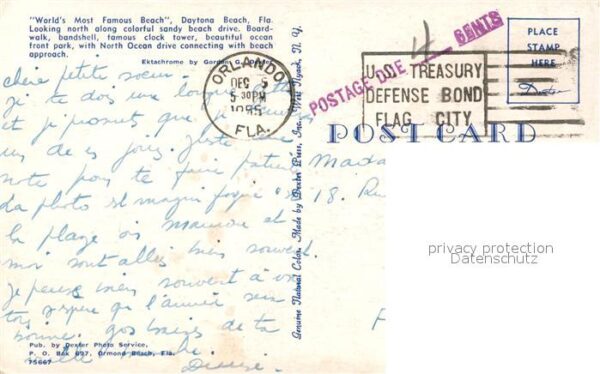 "World's Most Famous Beach", Daytona Beach, Fla.
Looking north along colorful sandy beach drive. Board-
walk, bandshell, famous clock tower, beautiful ocean
front park, with North Ocean drive connecting with beach
approach.
Ektachrome by Gordon
chère petite soeur.
je te dois une longue
et je promets que je
un de es jours. Juste
note pour te faire
la photo
la plage où maman et
moi sont allés bien souvent.
je pense bien souvent à
toi j'espère que l'année sera
bonne. gos baises de ta
Denise.
Pub. by Dexter Photo Service,
P. O. Box 697, Ormond Beach, Fla.
75667
Genuine Natural Color, Made by Dexter Press, Inc., West Nyack, N. Y.
ORLANDO
DEC 5
5 30PM
FLA.
POSTAGE DUE 4 CENTS
U.S. TREASURY
DEFENSE BOND
FLAG CITY
PLACE
STAMP
HERE
Dexter
POST CARD
Mada
18. Ru
privacy protection
Datenschutz